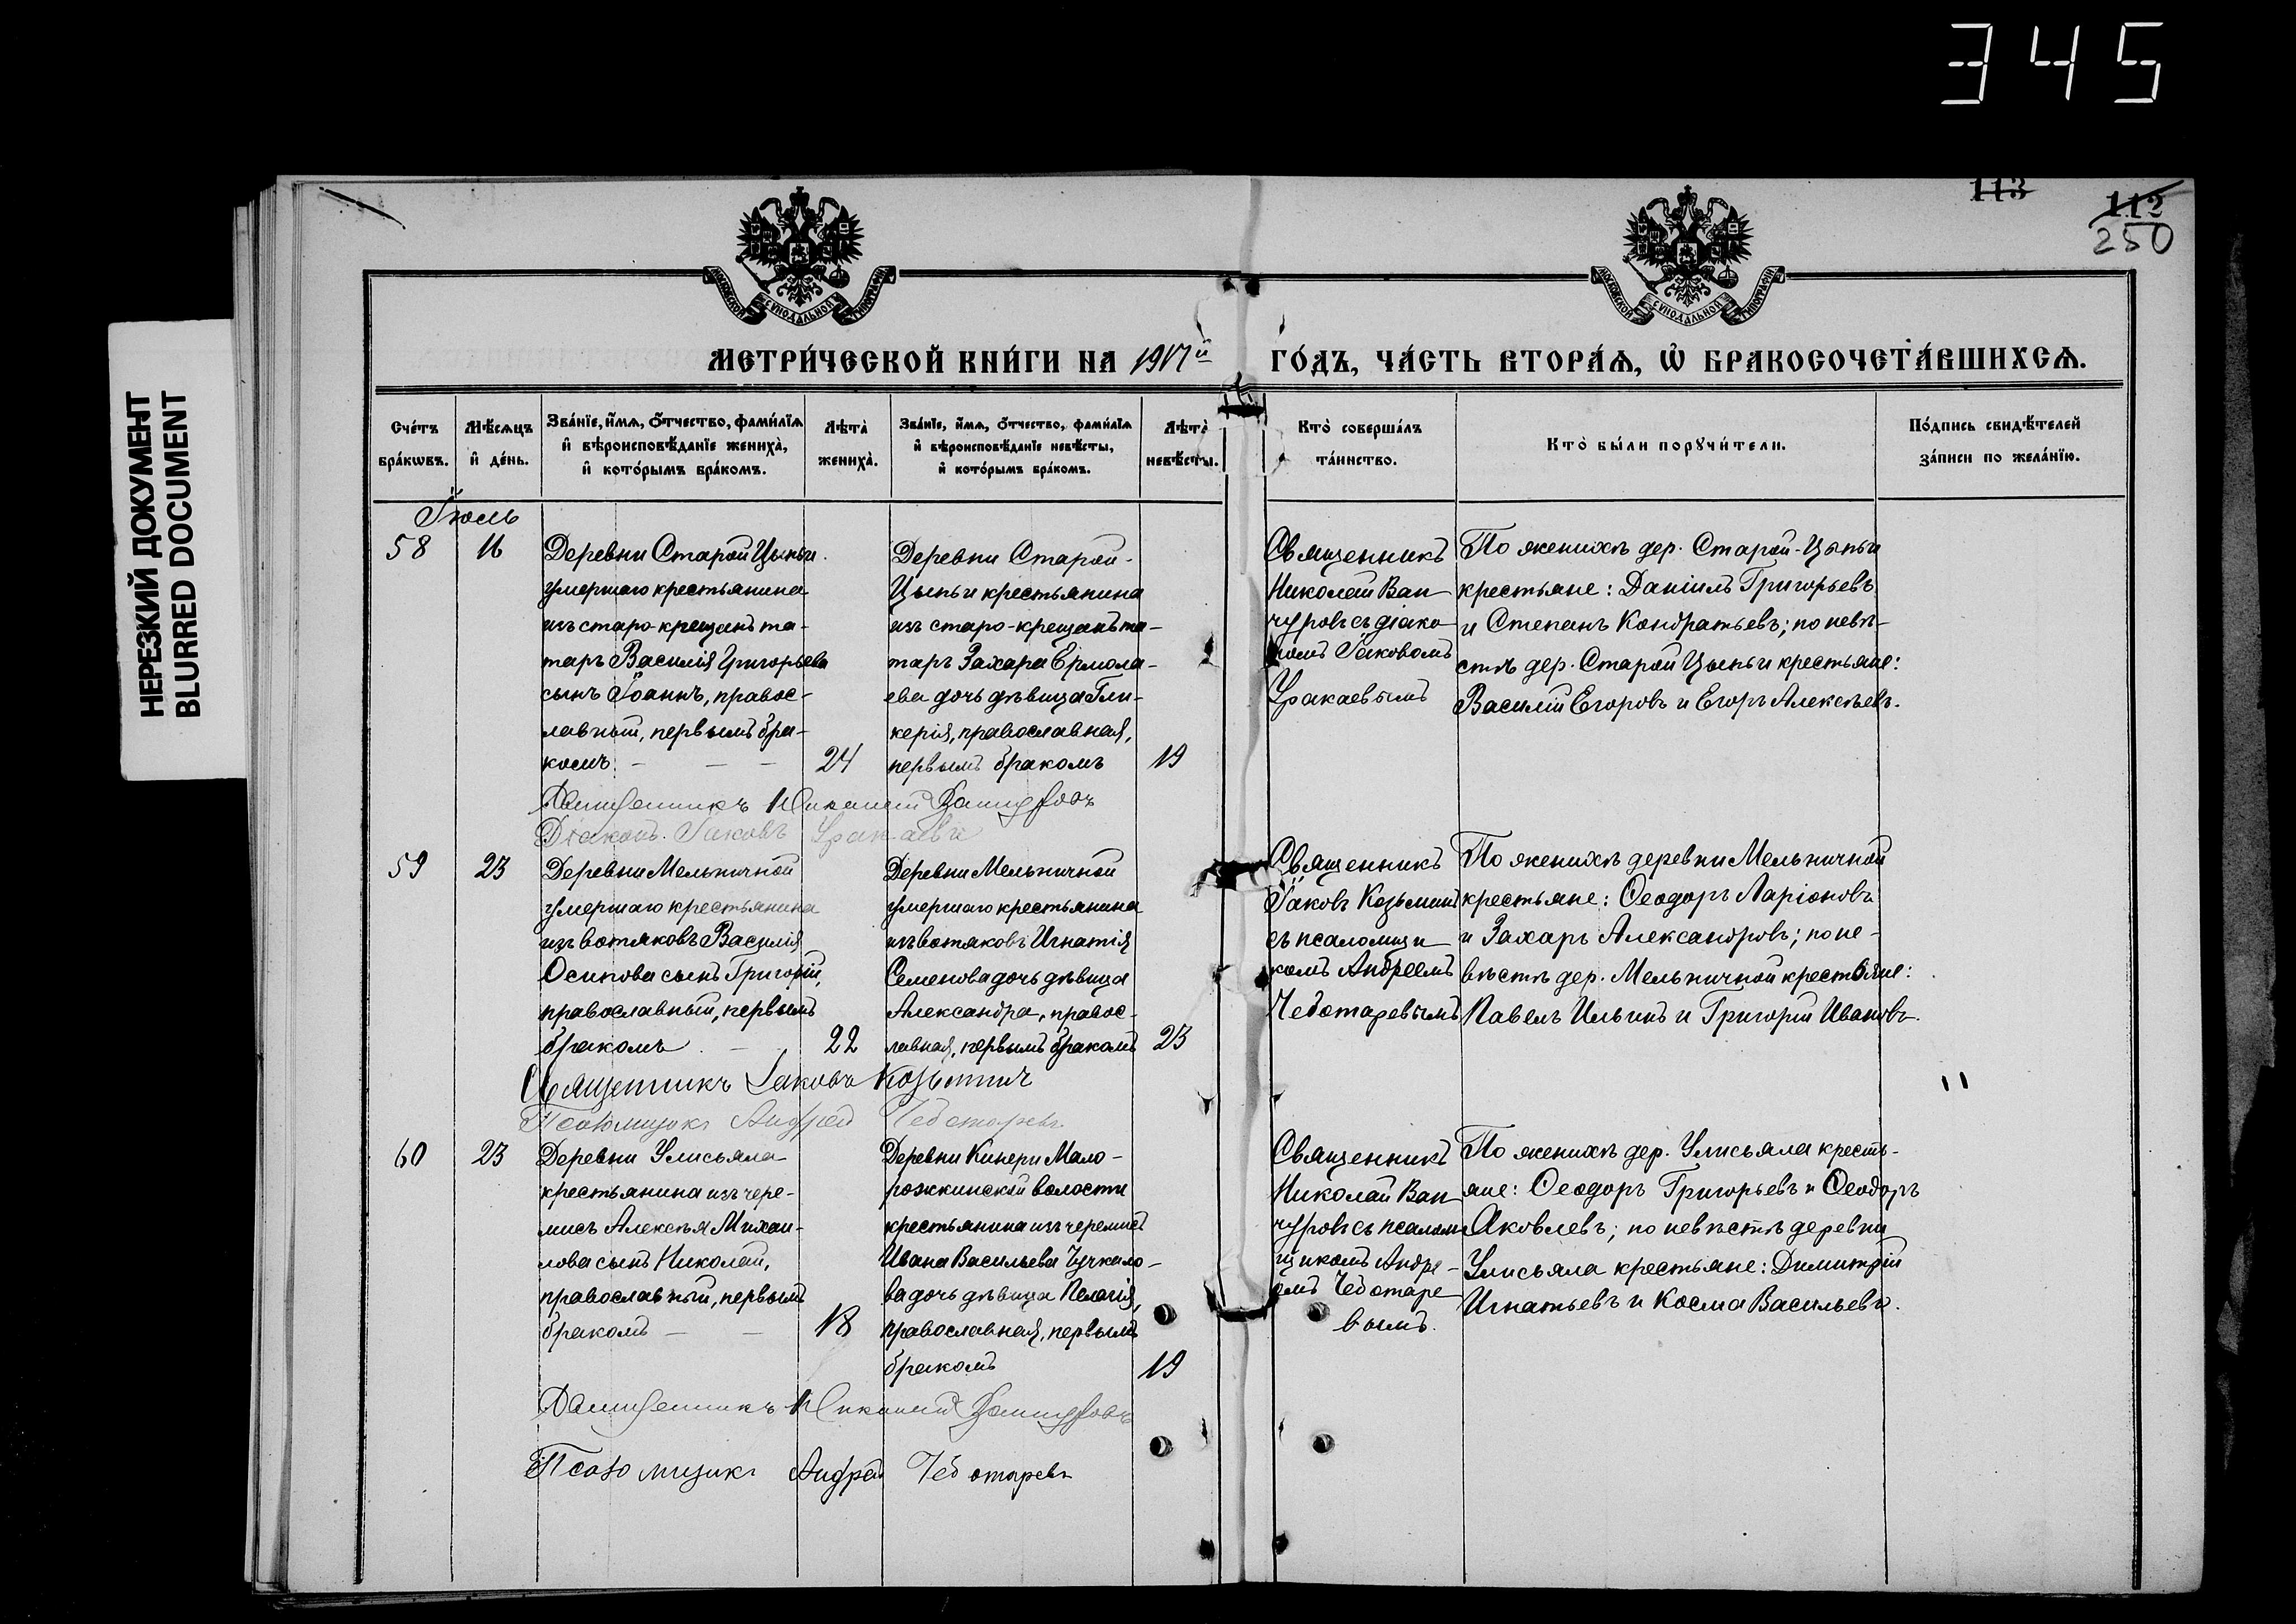 345
НЕРЕЗКИЙ ДОКУМЕНТ
BLURRED DOCUMENT
113
112
250
МОСКОВСКОЙ СУНОДАЛЬНОЙ ТИПОГРАФІИ
МОСКОВСКОЙ СУНОДАЛЬНОЙ ТИПОГРАФІИ
МЕТРИ́ЧЕСКОЙ КНИ́ГИ НА 1917й ГО́ДЪ, ЧА́СТЬ ВТОРА́Ѧ, Ѡ҆ БРАКОСОЧЕТА́ВШИХСѦ.
Сче́тъ
бра́кѡвъ.
Мѣ́сѧцъ
и҆ де́нь.
Зва́нїе, и҆́мѧ, ѻ҆́тчество, фами́лїѧ
и҆ вѣроисповѣ́данїе женихà,
и҆ кото́рымъ бра́комъ.
Лѣ́та
женихà.
Зва́нїе, и҆́мѧ, ѻ҆́тчество, фами́лїѧ
и҆ вѣроисповѣ́данїе невѣ́сты,
и҆ кото́рымъ бра́комъ.
Лѣ́та
невѣ́сты.
Кто̀ соверша́лъ
та́инство.
Кто̀ бы́ли порꙋчи́тели.
По́дпись свидѣ́телей
за́писи по жела́нїю.
Іюль
58
16
Деревни Старой Цыпьи
умершаго крестьянина
изъ старо-крещенъ та-
таръ Василія Григорьева
сынъ Іоаннъ, правос-
лавный, первымъ бра-
комъ. — — —
24
Деревни Старой-
Цыпьи крестьянина
изъ старо-крещенъ та-
таръ Захара Ермола-
ева дочь дѣвица Гли-
керія, православная,
первымъ бракомъ
19
Священникъ
Николай Ван-
чуровъ съ діако-
номъ Іаковомъ
Уракаевымъ
По женихѣ дер. Старой-Цыпьи
крестьяне: Даніилъ Григорьевъ
и Степанъ Кондратьевъ; по невѣ-
стѣ дер. Старой Цыпьи крестьяне:
Василій Егоровъ и Егоръ Алексѣевъ.
Священникъ Николай Ванчуровъ
Діаконъ Іаковъ Уракаевъ
59
23
Деревни Мельничной
умершаго крестьянина
изъ вотяковъ Василія
Осипова сынъ Григорій,
православный, первымъ
бракомъ. —
22
Деревни Мельничной
умершаго крестьянина
изъ вотяковъ Игнатія
Семенова дочь дѣвица
Александра, правос-
лавная, первымъ бракомъ
23
Священникъ
Іаковъ Козьминъ
съ псаломщи-
комъ Андреемъ
Чеботаревымъ
По женихѣ деревни Мельничной
крестьяне: Ѳеодоръ Ларіоновъ
и Захаръ Александровъ; по не-
вѣстѣ дер. Мельничной крестьяне:
Павелъ Ильинъ и Григорій Ивановъ.
Священникъ Іаковъ Козьминъ
Псаломщикъ Андрей Чеботаревъ
60
23
Деревни Улисьяла
крестьянина изъ чере-
мисъ Алексѣя Михаи-
лова сынъ Николай,
православный, первымъ
бракомъ — —
18
Деревни Кинери Мало-
рожкинской волости
крестьянина изъ черемисъ
Ивана Васильева Чучкало-
ва дочь дѣвица Пелагія,
православная, первымъ
бракомъ
19
Священникъ
Николай Ван-
чуровъ съ псалом-
щикомъ Андре-
емъ Чеботаре-
вымъ.
По женихѣ дер. Улисьяла кресть-
яне: Ѳеодоръ Григорьевъ и Ѳеодоръ
Яковлевъ; по невѣстѣ деревни
Улисьяла крестьяне: Димитрій
Игнатьевъ и Косма Васильевъ.
Священникъ Николай Ванчуровъ
Псаломщикъ Андрей Чеботаревъ